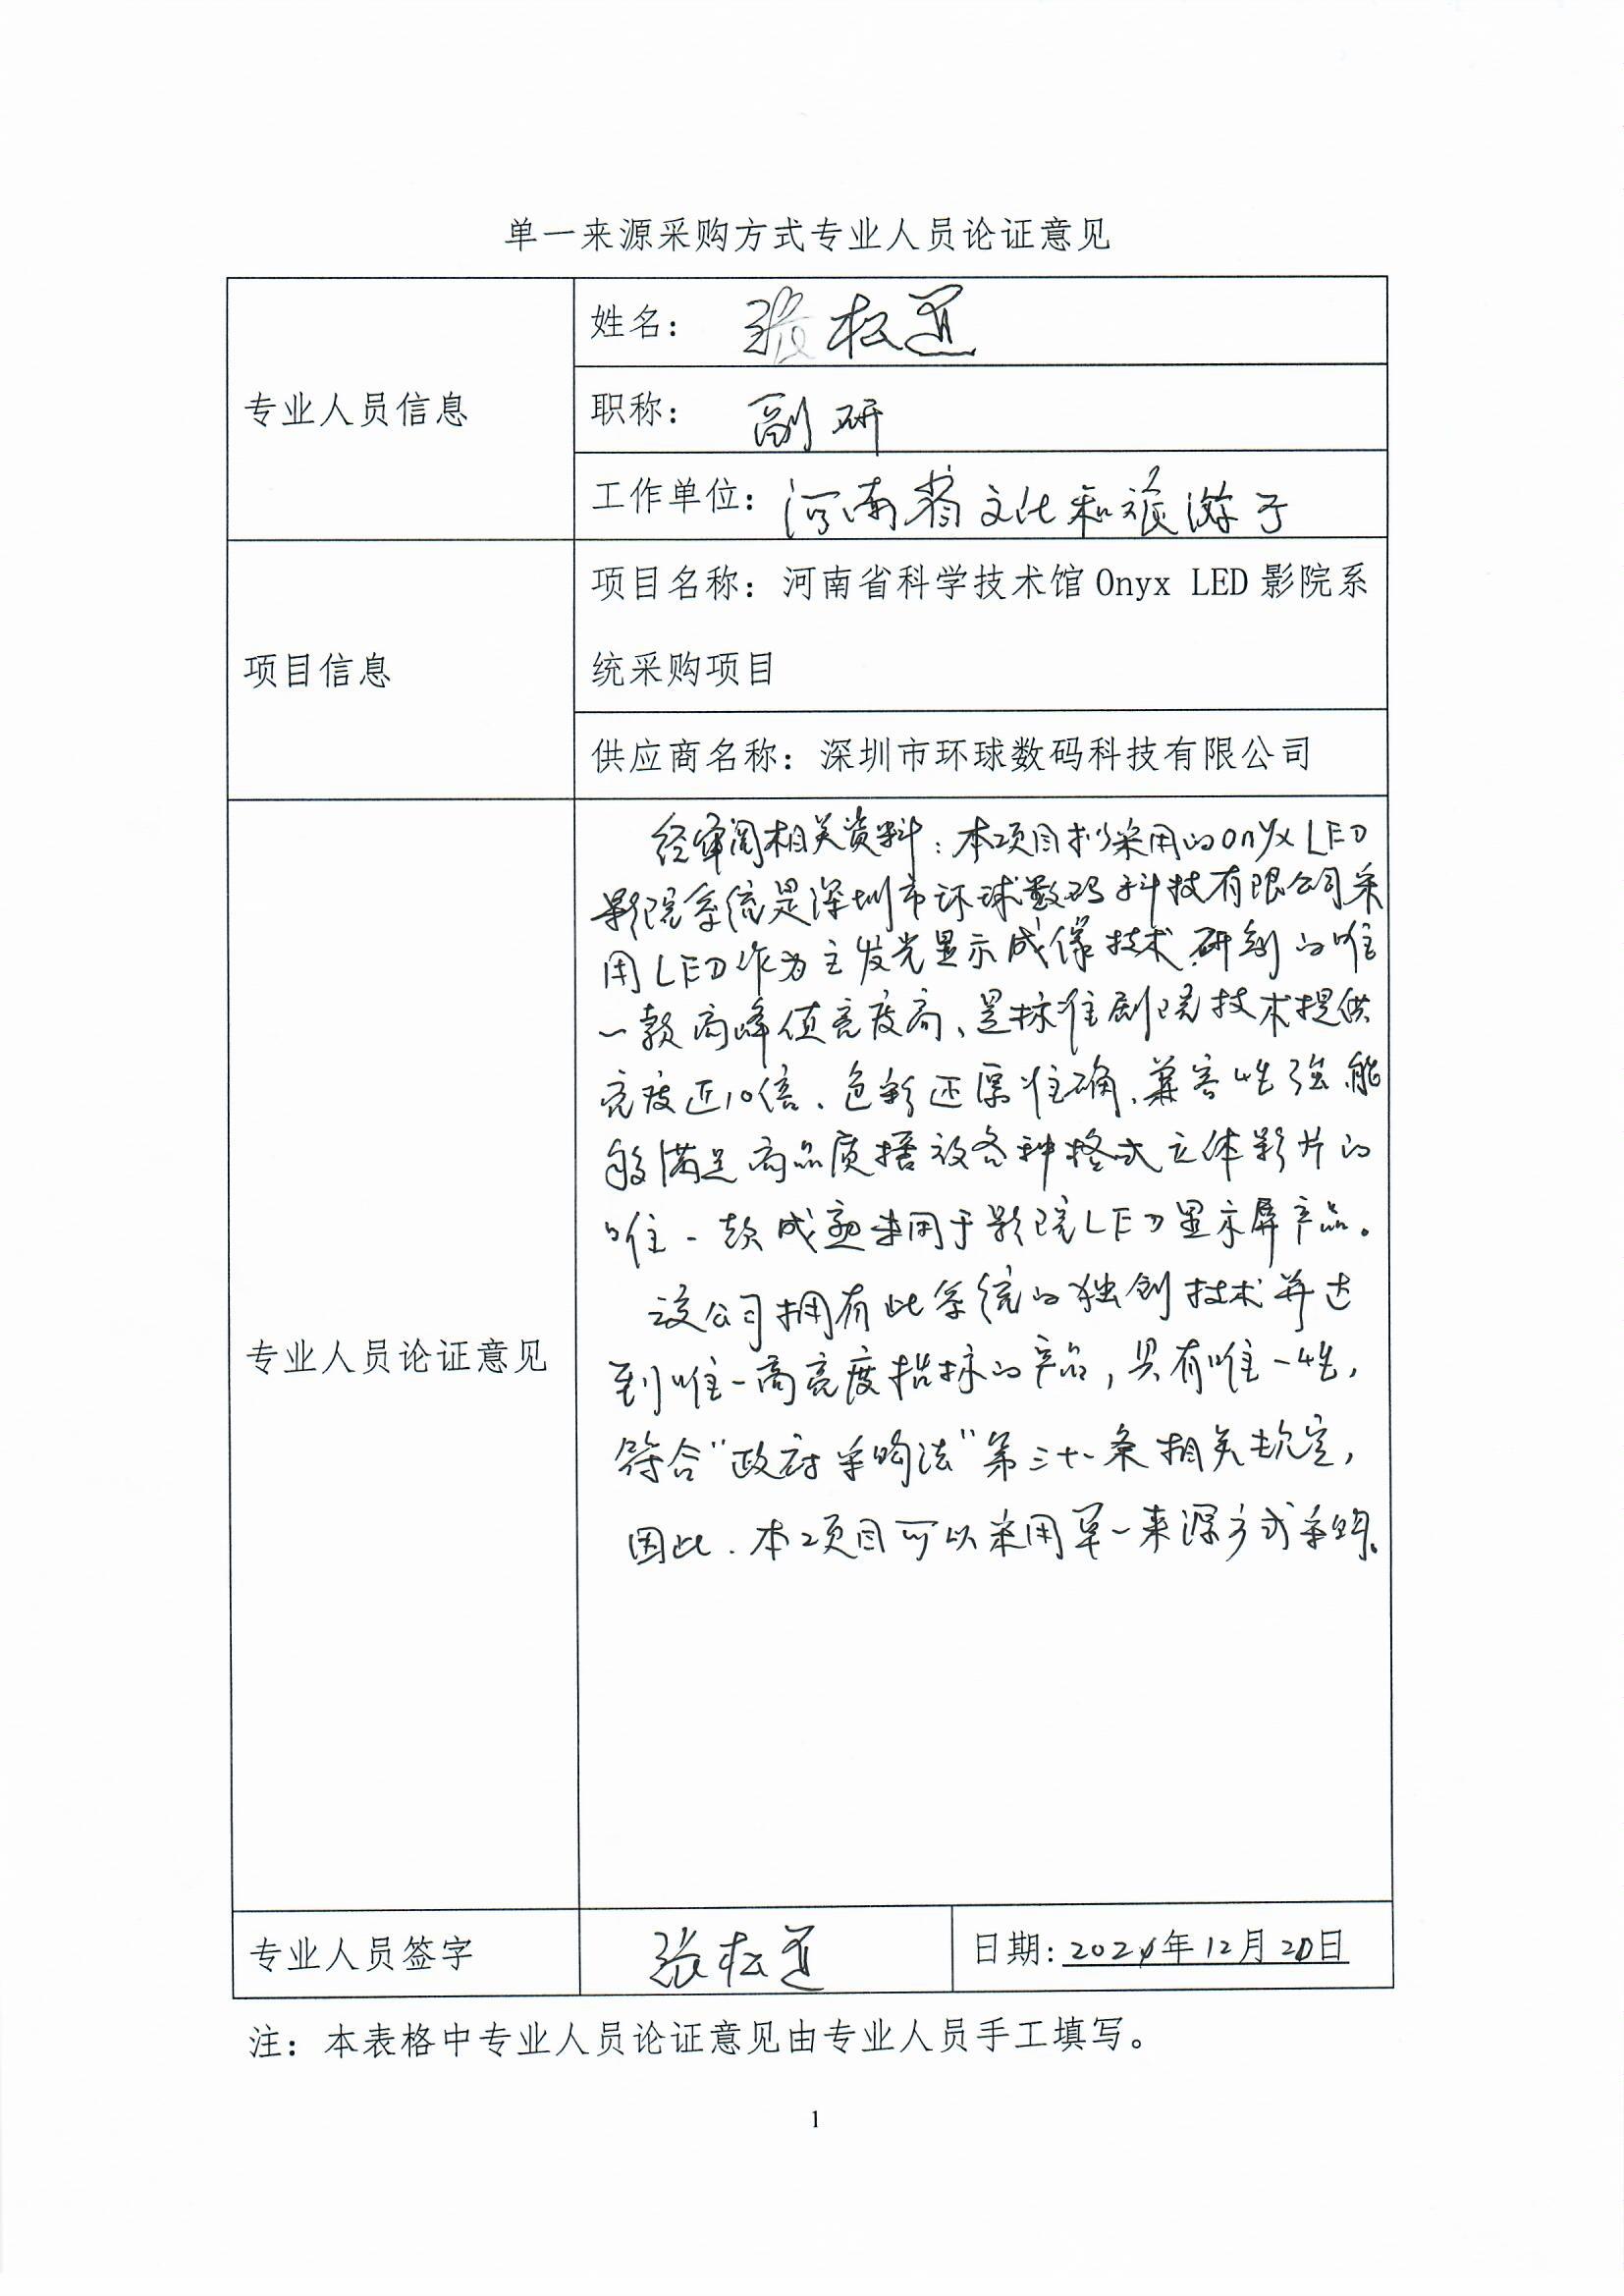 单一来源采购方式专业人员论证意见
专业人员信息
姓名： 张松道
职称： 副研
工作单位：河南省文化和旅游厅
项目信息
项目名称：河南省科学技术馆 Onyx LED 影院系
统采购项目
供应商名称：深圳市环球数码科技有限公司
专业人员论证意见
经审阅相关资料：本项目拟采用的onyx LED
影院系统是深圳市环球数码科技有限公司采
用LED作为主发光显示成像技术,研制的唯
一款高峰值亮度高、是标准剧院技术提供
亮度近10倍、色彩还原准确、兼容性强能
够满足高品质播放各种格式立体影片的
唯一款成熟用于影院LED显示屏产品。
该公司拥有此系统的独创技术并达
到唯一高亮度指标的产品，具有唯一性，
符合“政府采购法”第三十一条相关规定，
因此.本项目可以采用单一来源方式采购。
专业人员签字
张松道
日期：2024年12月20日
注：本表格中专业人员论证意见由专业人员手工填写。
1